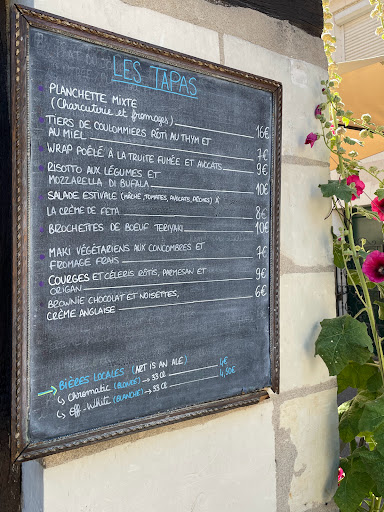 LES TAPAS
PLANCHETTE MIXTE
(Charcuterie et fromages) 16€
TIERS DE COULOMMIERS RÔTI AU THYM ET
AU MIEL 7€
WRAP POÊLÉ À LA TRUITE FUMÉE ET AVOCATS 9€
RISOTTO AUX LÉGUMES ET
MOZZARELLA DI BUFALA 10€
SALADE ESTIVALE (MÂCHE, TOMATES, AVOCATS, PÊCHES) À
LA CRÈME DE FETA 8€
BROCHETTES DE BOEUF TERIYAKI 10€
MAKI VÉGÉTARIENS AUX CONCOMBRES ET
FROMAGE FRAIS 7€
COURGES ET CÉLERIS RÔTIS, PARMESAN ET
ORIGAN 9€
BROWNIE CHOCOLAT ET NOISETTES,
CRÈME ANGLAISE 6€
→ BIÈRES LOCALES (ART IS AN ALE)
↳ Chromatic (BLONDE) → 33 CL 4€
↳ Eff-White (BLANCHE) → 33 CL 4,50€